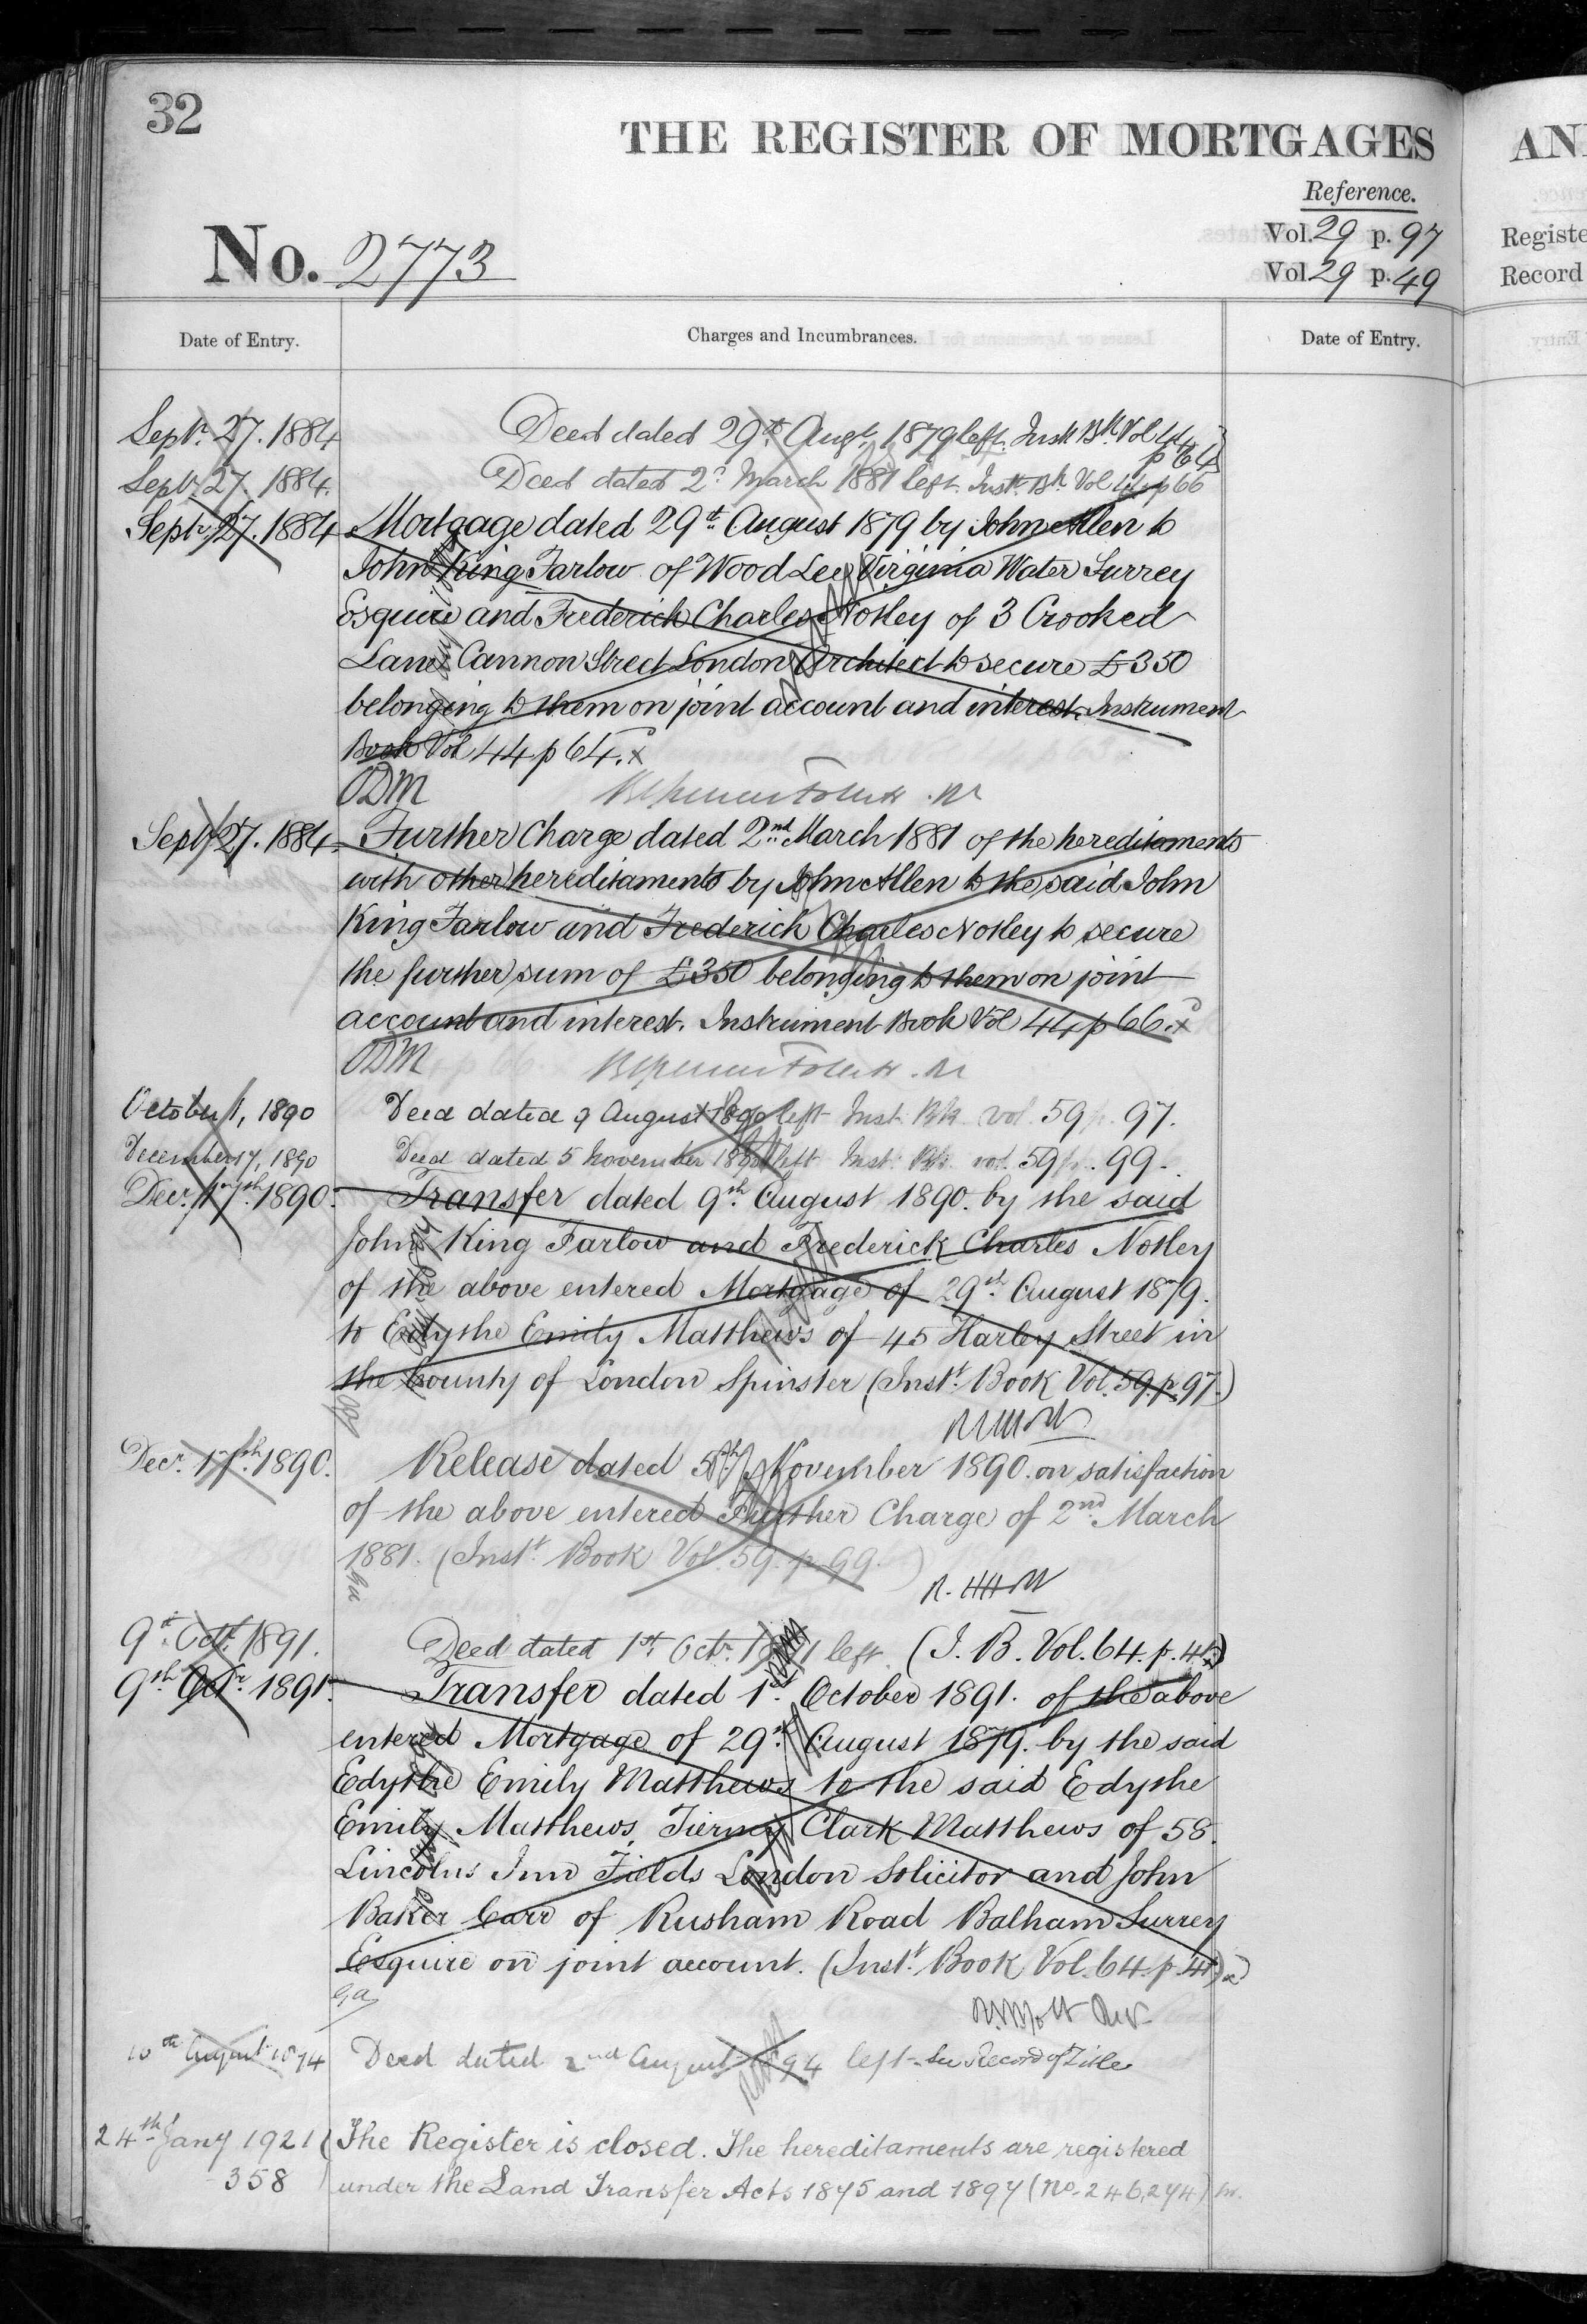 32
THE REGISTER OF MORTGAGES
AN
Reference.
No. 2773
Vol. 29 p. 97
Vol 29 p. 49
Registe
Record
Date of Entry.
Charges and Incumbrances.
Date of Entry.
Septr. 27. 1884 Deed dated 29th Augt. 1879 left. Inst Bk. Vol 44 p 64
Septr. 27. 1884. Deed dated 2d March 1881 left. Inst. Bk Vol 44 p 66
Septr. 27. 1884 Mortgage dated 29th August 1879 by John Allen to
John King Farlow of Wood Lee Virginia Water Surrey
Esquire and Frederick Charles Notley of 3 Crooked
Lane Cannon Street London Architect to secure £350
belonging to them on joint account and interest. Instrument
Book Vol 44 p 64. x
ODM
Septr. 27. 1884. Further Charge dated 2nd March 1881 of the hereditaments
with other hereditaments by John Allen to the said John
King Farlow and Frederick Charles Notley to secure
the further sum of £350 belonging to them on joint
account and interest. Instrument Book Vol 44 p 66. x
ODM
October 1, 1890 Deed dated 9 August 1890 left Inst. Bk. vol. 59 p. 97.
December 17, 1890 Deed dated 5 November 1890 left Inst. Bk. vol. 59 p. 99.
Decr. 17th. 1890. Transfer dated 9th. August 1890. by the said
John King Farlow and Frederick Charles Notley
of the above entered Mortgage of 29th August 1879.
to Edythe Emily Matthews of 45 Harley Street in
the County of London Spinster (Inst. Book Vol. 59. p. 97.)
Decr. 17th. 1890. Release dated 5th November 1890. on satisfaction
of the above entered Further Charge of 2nd March
1881. (Inst. Book Vol. 59. p. 99.)
9th Octr. 1891. Deed dated 1st Octr. 1891 left. (I. B. Vol. 64. p. 41.)
9th Octr. 1891. Transfer dated 1st. October 1891. of the above
entered Mortgage of 29th. August 1879. by the said
Edythe Emily Matthews to the said Edythe
Emily Matthews, Tierney Clark Matthews of 58.
Lincolns Inn Fields London Solicitor and John
Baker Carr of Rusham Road Balham Surrey
Esquire on joint account. (Inst. Book Vol. 64. p. 41.)
10th August 1894 Deed dated 2nd August 1894 left. See Record of Title
24th Jany 1921 The Register is closed. The hereditaments are registered
358 under the Land Transfer Acts 1875 and 1897 (No. 246,274)